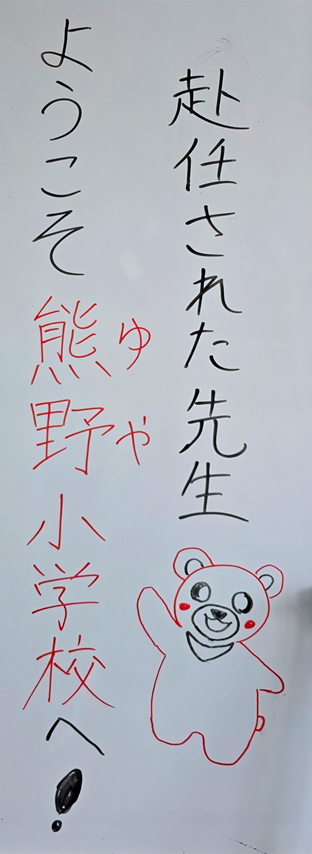 赴任された先生
ようこそ熊野小学校へ!
ゆや